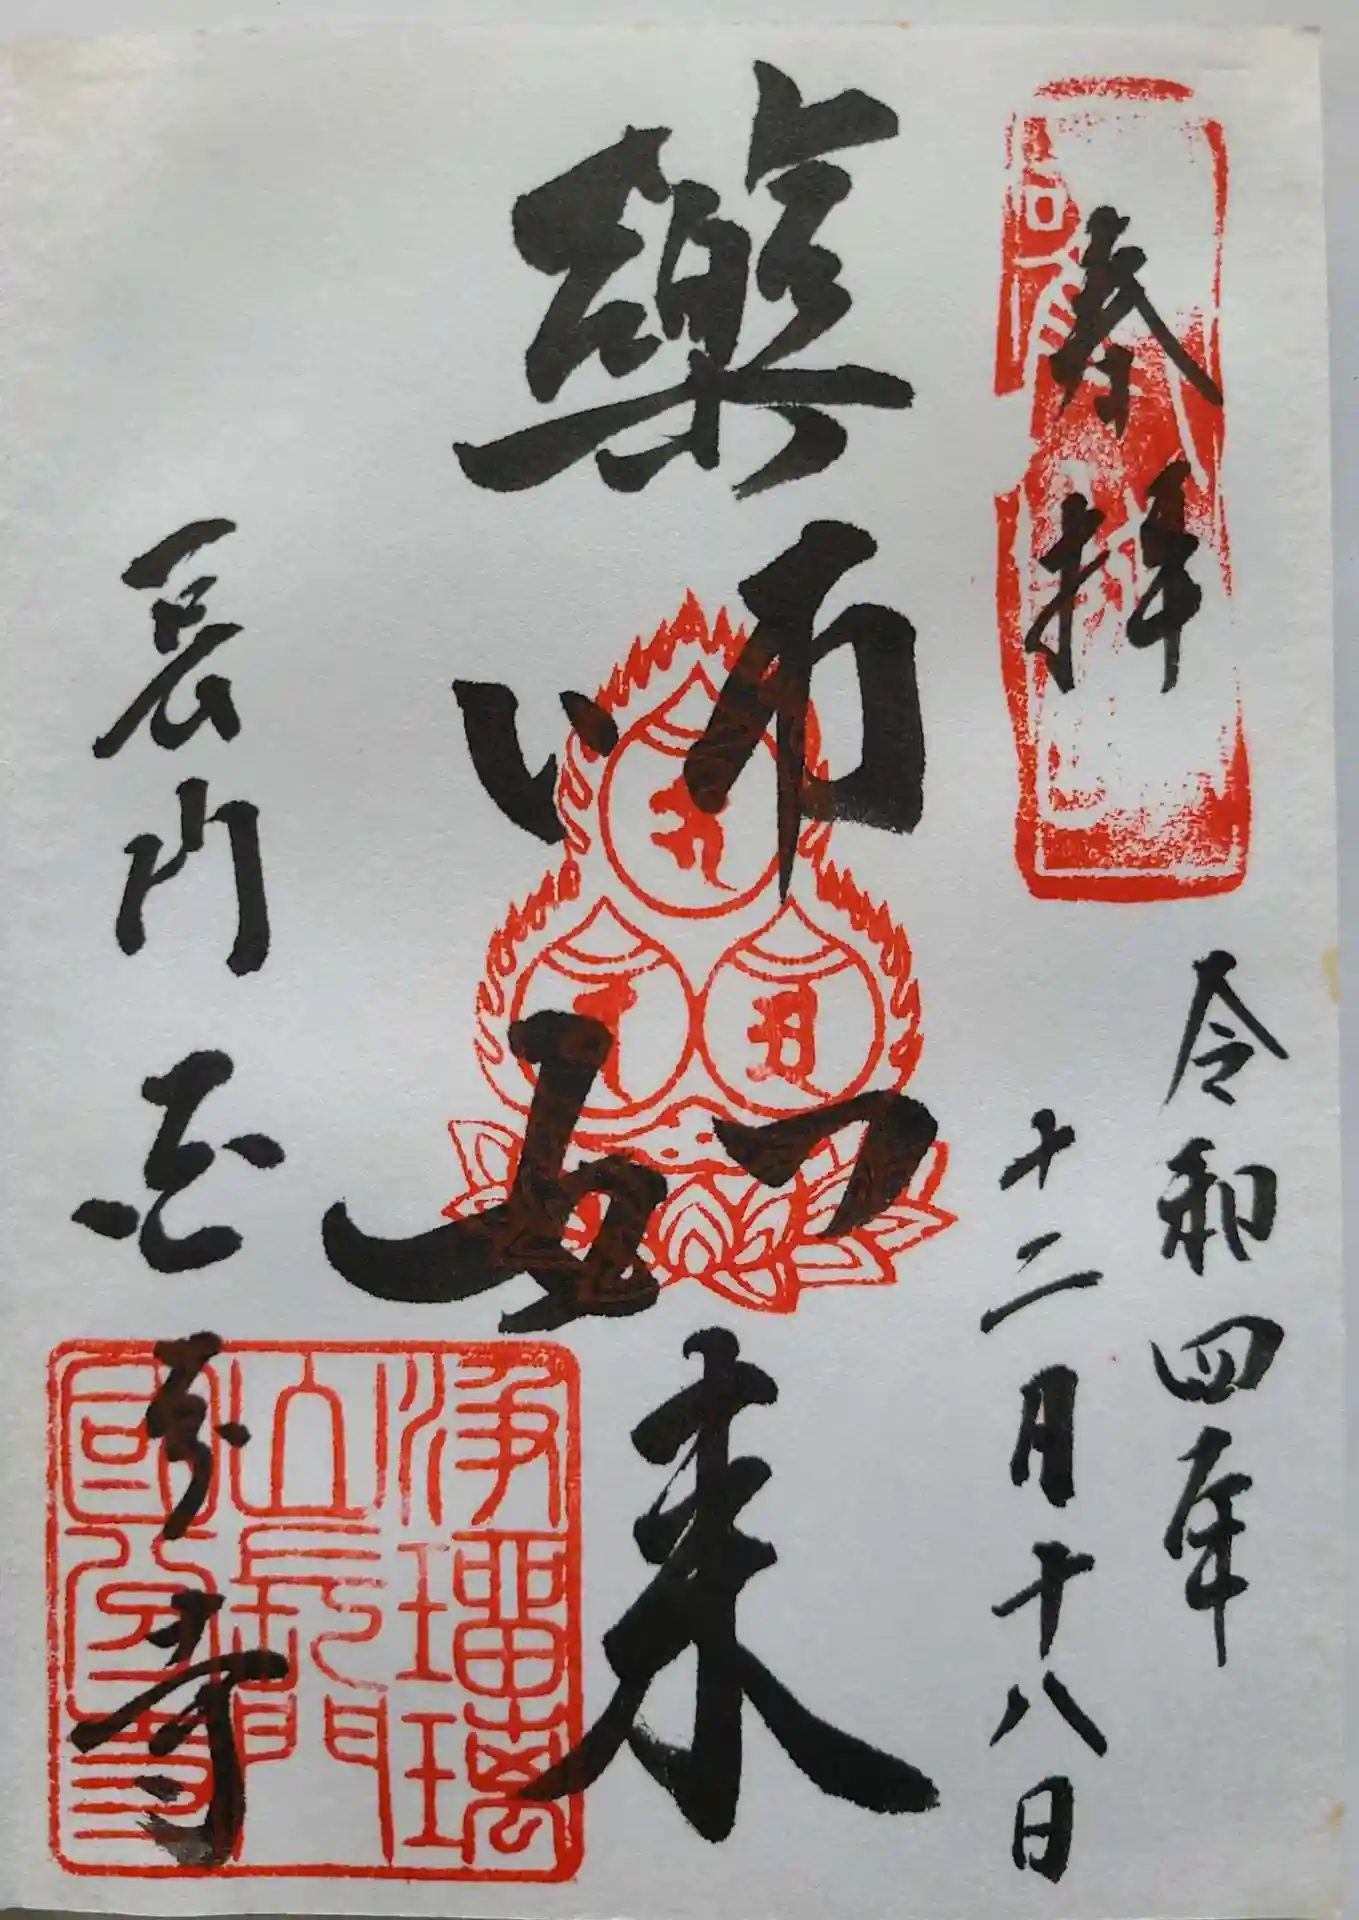 奉拝
令和四年
十二月十八日
藥師如来
長門国分寺
浄瑠璃
山長門
國分寺